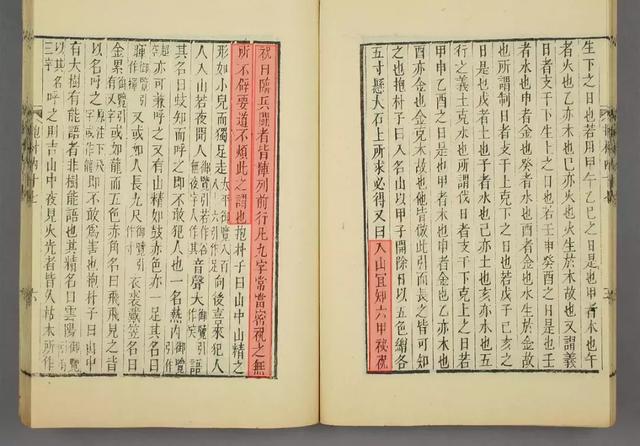 生下之日也若用甲午乙巳之日是也甲者木也午
者火也乙亦木也巳亦火也火生於木故也又謂義
日者支干下生上之日也若壬申癸酉之日是也壬
者水也申者金也癸者水也酉者金也水生於金故
也所謂制日者支干上克下之日也若戊子己亥之
日是也戊者土也子者水也己亦土也亥亦水也五
行之義土克水也所謂伐日者支干下克上之日若
甲申乙酉之日是也甲者木也申者金也乙亦木也
酉亦金也金克木故也他皆倣此引而長之皆可知
之也抱朴子曰入名山以甲子開除日以五色繒各
五寸懸大石上所求必得又曰入山宜知六甲秘祝
祝曰臨兵鬭者皆陣列前行凡九字常當密祝之無
所不辟要道不煩此之謂也抱朴子曰山中山精之
形如小兒而獨足走向後喜來犯人
人入山若夜聞人音聲大語
其名曰蚑知而呼之即不敢犯人也一名熱內
亦可兼呼之又有山精如鼓赤色亦一足其名曰
暉又或如人長九尺衣裘戴笠名曰
金累又或如龍而五色赤角名曰飛飛見之皆
以名呼之即不敢為害也抱朴子曰山中
有大樹有能語者非樹能語也其精名曰雲陽
以其名呼之則吉山中夜見火光者皆久枯木所作
抱朴內十七